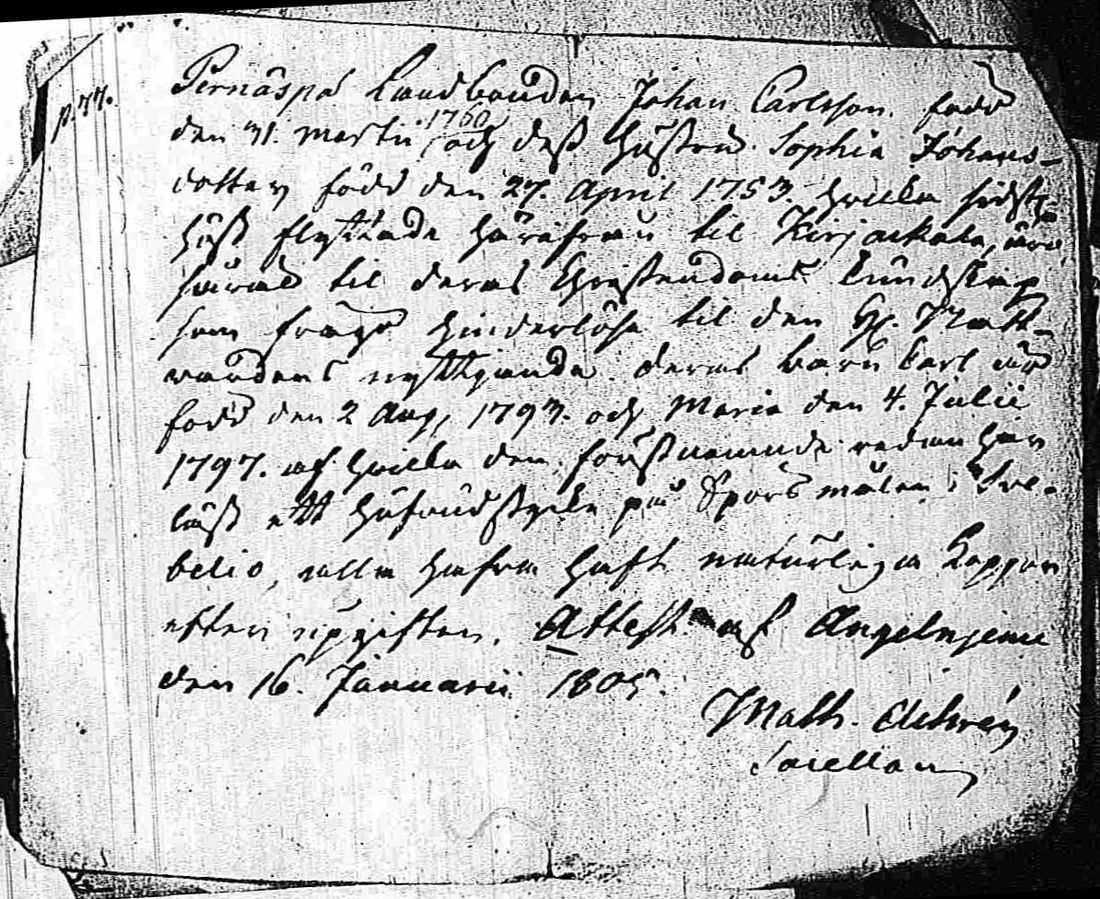 p. 77.
Pernäspä Landbonden Johan Carlsson, född
den 31. Martii 1760 och dess Hustru Sophia Johans-
dotter född den 27. April 1753. hvilka sidst
höst flyttade härifrån til Kirjackala, äro
såväl til deras Christendoms kundskap
som frägd hinderlöse til den H. Natt-
vardens nyttjande. deras barn Carl är
född den 2 Aug, 1793. och Maria den 4. Julii
1797. af hvilka den förstnämnde redan har
läst ett hufvudstycke på Spörsmålen i Sve-
belio, alla hafva haft naturliga Koppor
efter upgiften. Attest. af Angelnjemi
den 16. Januarii 1805.
Math.
Sacellan